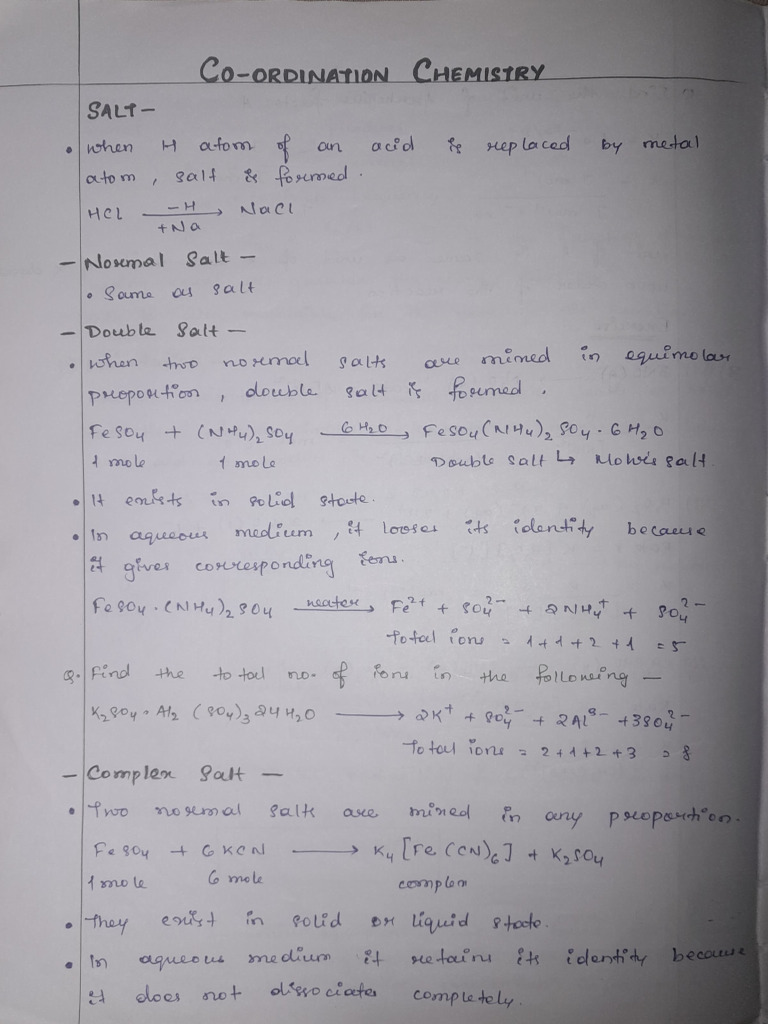 CO-ORDINATION CHEMISTRY
SALT -
• When H atom of an acid is replaced by metal
atom, salt is formed.
HCl —(-H / +Na)→ NaCl
- Normal Salt -
• Same as salt
- Double Salt -
• When two normal salts are mixed in equimolar
proportion, double salt is formed.
FeSO4 + (NH4)2SO4 —6H2O→ FeSO4(NH4)2SO4·6H2O
1 mole 1 mole Double salt ↳ Mohr's salt
• It exists in solid state.
• In aqueous medium, it looses its identity because
it gives corresponding ions.
FeSO4·(NH4)2SO4 —water→ Fe2+ + SO4 2- + 2NH4+ + SO4 2-
Total ions = 1+1+2+1 = 5
Q. Find the total no. of ions in the following -
K2SO4·Al2(SO4)3 24H2O → 2K+ + SO4 2- + 2Al3- + 3SO4 2-
Total ions = 2+1+2+3 = 8
- Complex Salt -
• Two normal salts are mixed in any proportion.
FeSO4 + 6KCN → K4[Fe(CN)6] + K2SO4
1 mole 6 mole complex
• They exist in solid or liquid state.
• In aqueous medium it retains its identity because
it does not dissociates completely.